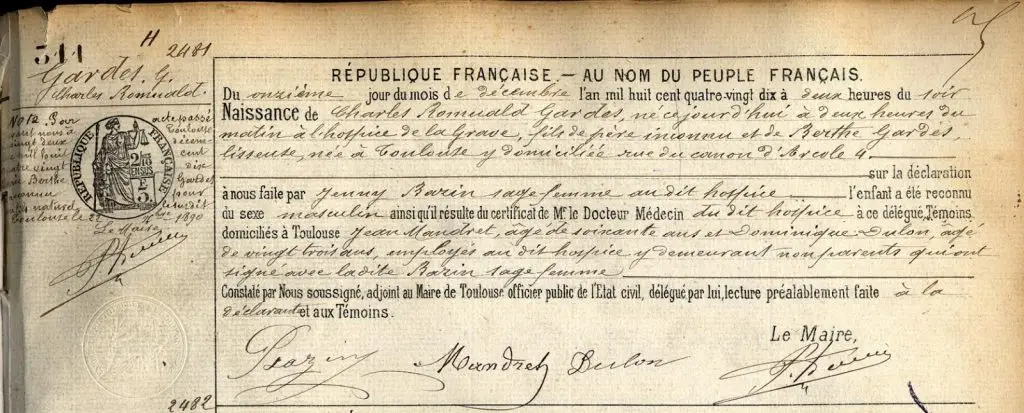 511
H 2481
Gardes. G.
Charles Romuald.
RÉPUBLIQUE FRANÇAISE. — AU NOM DU PEUPLE FRANÇAIS.
Du onzième jour du mois de décembre l'an mil huit cent quatre-vingt dix à deux heures du soir
Naissance de Charles Romuald Gardes, né cejourd'hui à deux heures du
matin à l'hospice de la Grave, fils de père inconnu et de Berthe Gardes
lisseuse, née à Toulouse y domiciliée rue du canon d'Arcole 4
sur la déclaration
à nous faite par Jenny Bazin sage-femme au dit hospice l'enfant a été reconnu
du sexe masculin ainsi qu'il résulte du certificat de Mr. le Docteur Médecin du dit hospice à ce délégué, Témoins
domiciliés à Toulouse Jean Mandret, âgé de soixante ans et Dominique Dulon, agé
de vingt trois ans, employés au dit hospice y demeurant non parents qui ont
signé avec ladite Bazin sage femme
Constaté par Nous soussigné, adjoint au Maire de Toulouse officier public de l'Etat civil, délégué par lui, lecture préalablement faite à la
déclarante et aux Témoins.
Le Maire,
Bazin Mandret Dulon
RÉPUBLIQUE FRANÇAISE
acte passé
Toulouse
vingt deux
décem-
mil huit
cent
quatre vingt
dix
Berthe
Gardes
reconnu
pour
naturel
Toulouse le 22 1890
Le Maire
2482